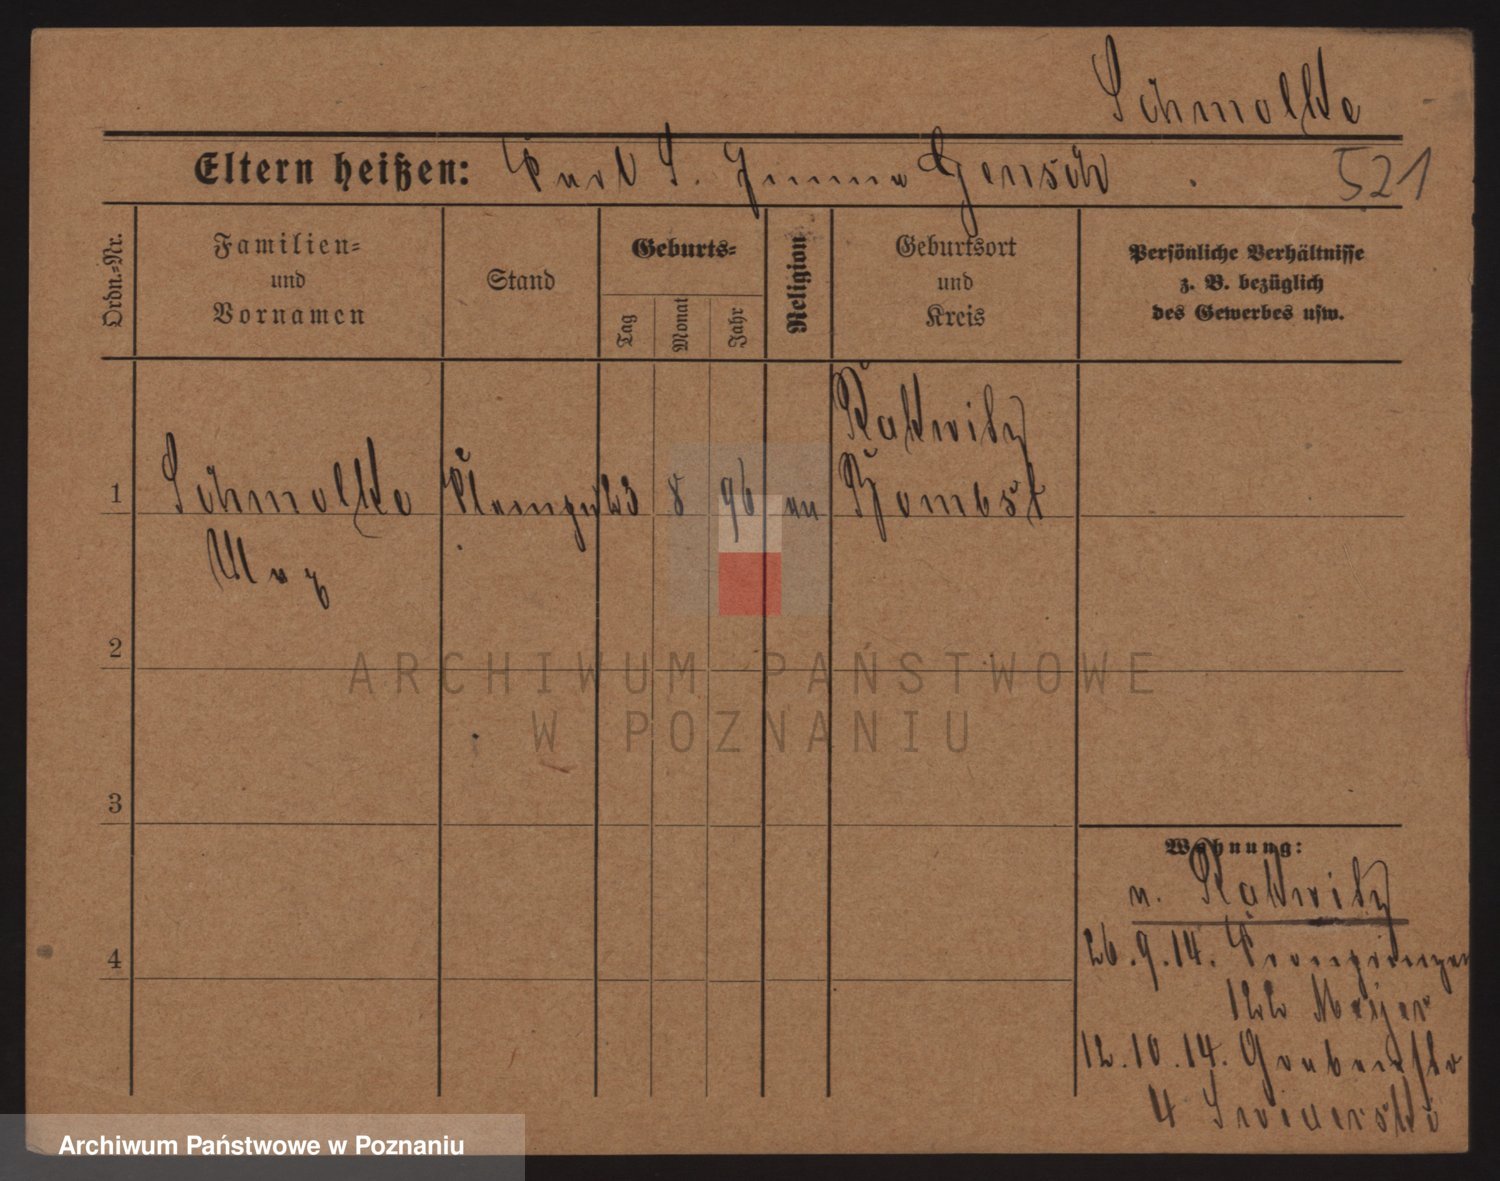 Schmolke
Eltern heißen: Karl S. Emma Gensch
521
Ordn.-Nr.
Familien-
und
Vornamen
Stand
Geburts-
Tag
Monat
Jahr
Religion
Geburtsort
und
Kreis
Persönliche Verhältnisse
z. B. bezüglich
des Gewerbes usw.
Rakwitz
1 Schmolke 23 8 96 ev Bomst
Max
2
3
4
Wohnung:
n. Rakwitz
26.9.14. Kronprinzen
122 Meyer
12.10.14. Grabenstr
4
ARCHIWUM PAŃSTWOWE
W POZNANIU
Archiwum Państwowe w Poznaniu